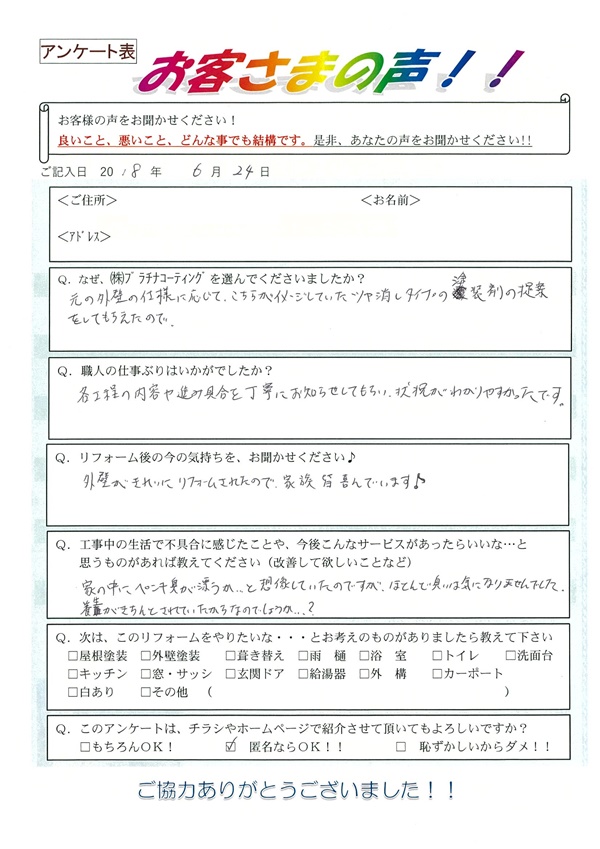 アンケート表
お客さまの声！！
お客様の声をお聞かせください！
良いこと、悪いこと、どんな事でも結構です。是非、あなたの声をお聞かせください!!
ご記入日 2018年 6月24日
＜ご住所＞ ＜お名前＞
＜ｱﾄﾞﾚｽ＞
Q．なぜ、㈱ﾌﾟﾗﾁﾅｺｰﾃｨﾝｸﾞを選んでくださいましたか？
元の外壁の仕様に応じて、こちらがイメージしていたツヤ消しタイプの塗装剤の提案
をしてもらえたので。
Q．職人の仕事ぶりはいかがでしたか？
各工程の内容や進み具合を丁寧にお知らせしてもらい、状況がわかりやすかったです。
Q．リフォーム後の今の気持ちを、お聞かせください♪
外壁がきれいにリフォームされたので、家族皆喜んでいます♪
Q．工事中の生活で不具合に感じたことや、今後こんなサービスがあったらいいな…と
思うものがあれば教えてください（改善して欲しいことなど）
家の中にペンキ臭が漂うか…と想像していたのですが、ほとんど臭いは気になりませんでした。
養生がきちんとされていたからなのでしょうか…？
Q．次は、このリフォームをやりたいな・・・とお考えのものがありましたら教えて下さい
□屋根塗装 □外壁塗装 □葺き替え □雨 樋 □浴 室 □トイレ □洗面台
□キッチン □窓・サッシ □玄関ドア □給湯器 □外 構 □カーポート
□白あり □その他 （ ）
Q．このアンケートは、チラシやホームページで紹介させて頂いてもよろしいですか？
□もちろんOK！ ☑ 匿名ならOK！！ □ 恥ずかしいからダメ！！
ご協力ありがとうございました！！